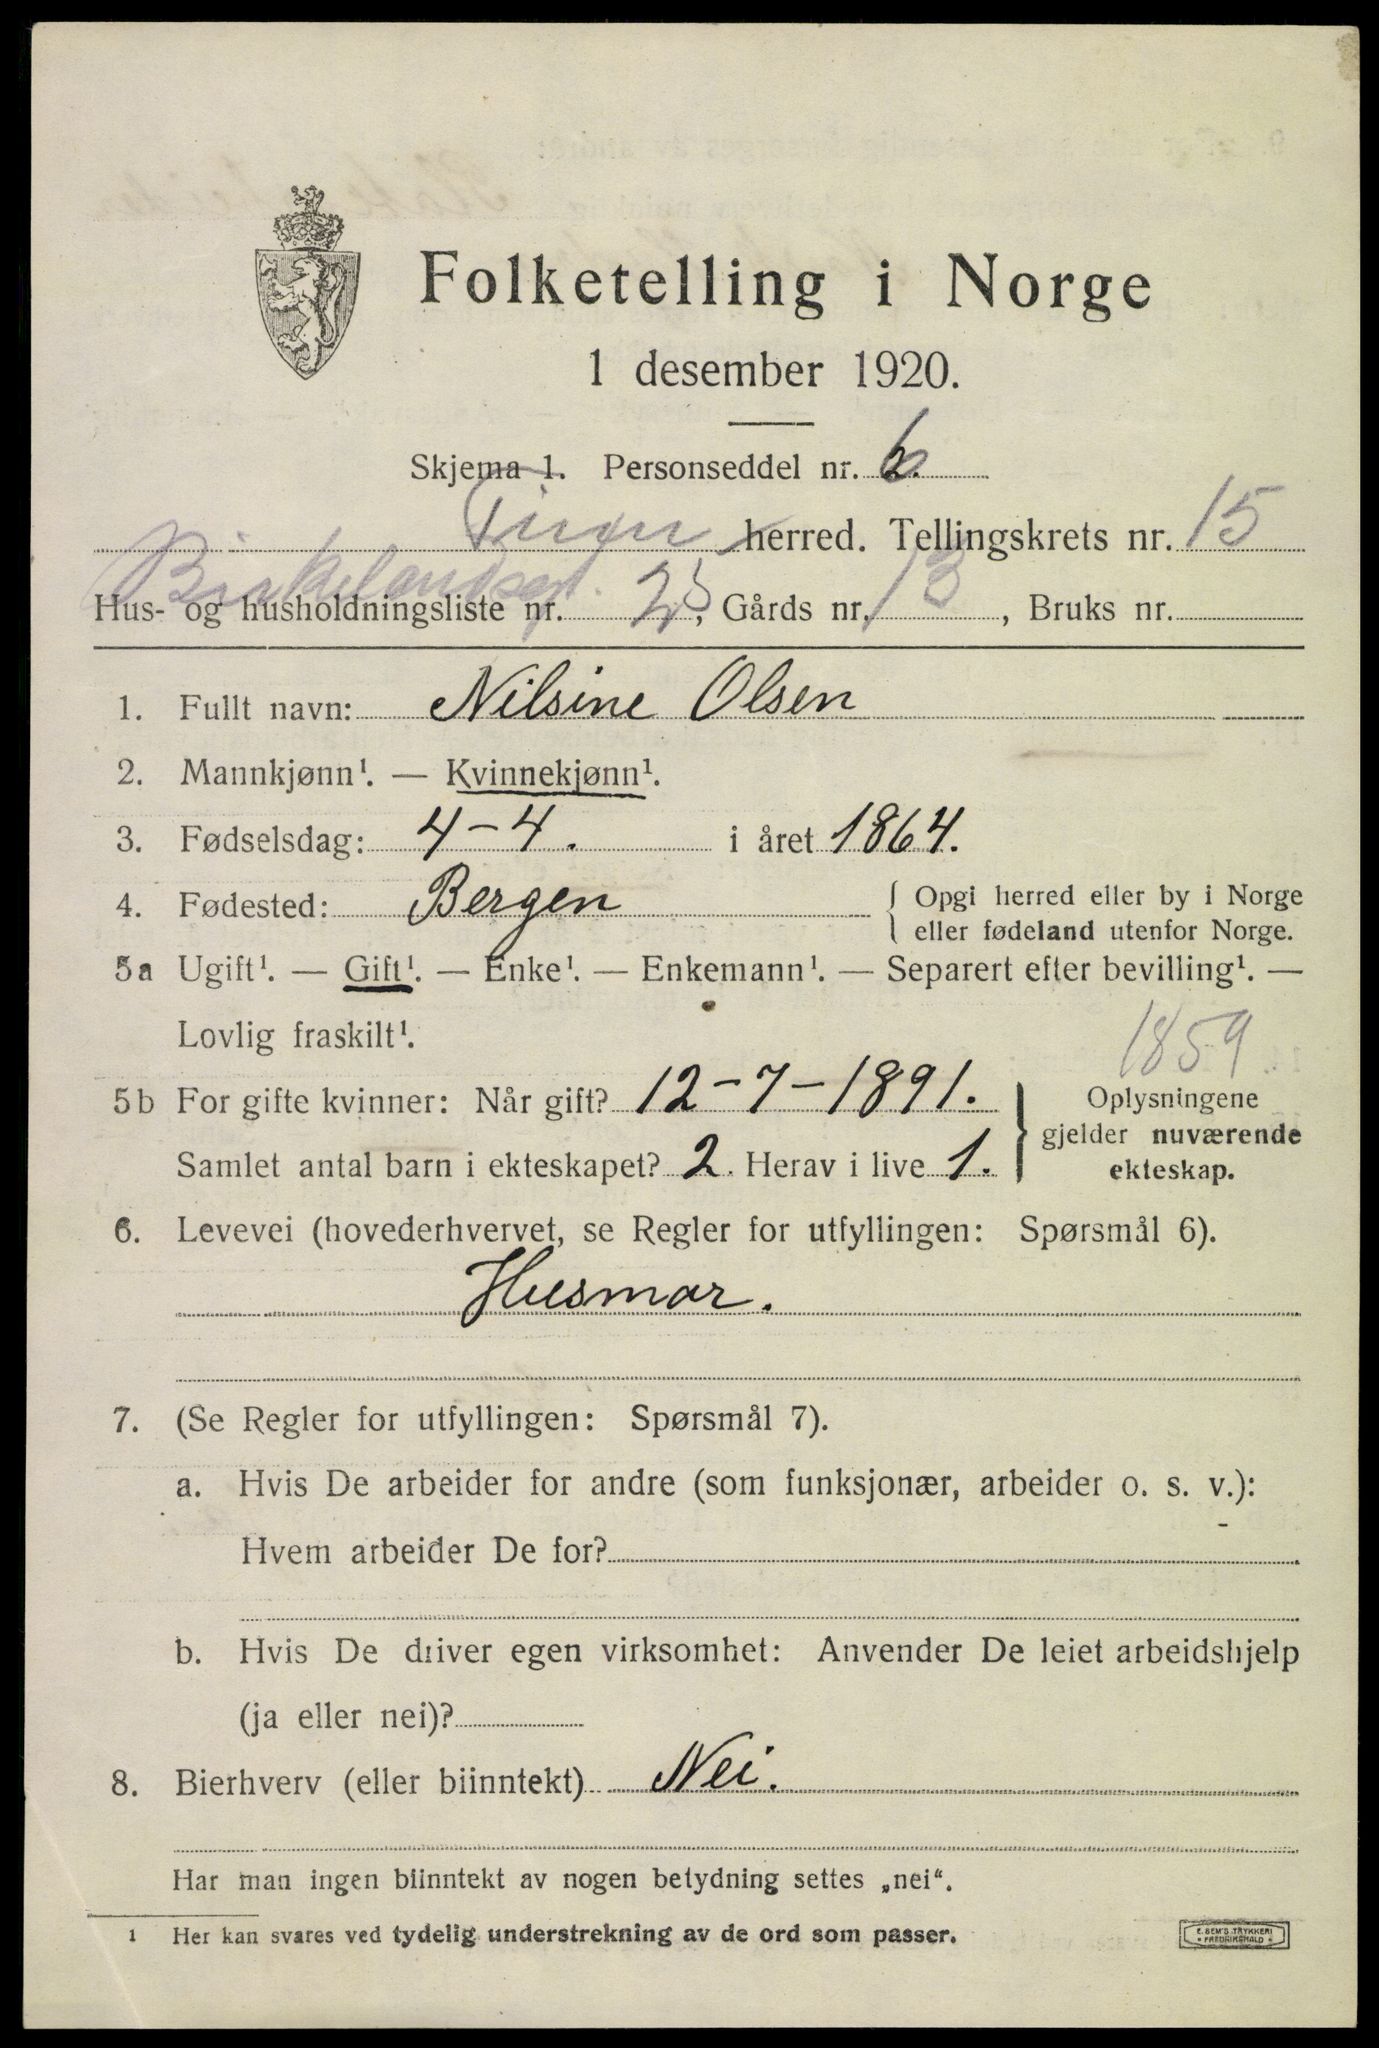 Folketelling i Norge
1 desember 1920.
Skjema 1. Personseddel nr. 6
herred. Tellingskrets nr. 15
Hus- og husholdningsliste nr. 25, Gårds nr. 13, Bruks nr.
1. Fullt navn: Nilsine Olsen
2. Mannkjønn¹. — Kvinnekjønn¹.
3. Fødselsdag: 4-4. i året 1864.
4. Fødested: Bergen { Opgi herred eller by i Norge
eller fødeland utenfor Norge.
5a Ugift¹. — Gift¹. — Enke¹. — Enkemann¹. — Separert efter bevilling¹. —
Lovlig fraskilt¹.
1859
5b For gifte kvinner: Når gift? 12-7-1891.
Samlet antal barn i ekteskapet? 2. Herav i live 1.
} Oplysningene
gjelder nuværende
ekteskap.
6. Levevei (hovederhvervet, se Regler for utfyllingen: Spørsmål 6).
Husmor.
7. (Se Regler for utfyllingen: Spørsmål 7).
a. Hvis De arbeider for andre (som funksjonær, arbeider o. s. v.):
Hvem arbeider De for?
b. Hvis De driver egen virksomhet: Anvender De leiet arbeidshjelp
(ja eller nei)?
8. Bierhverv (eller biinntekt) Nei.
Har man ingen biinntekt av nogen betydning settes „nei“.
1 Her kan svares ved tydelig understrekning av de ord som passer.
E. SEM'S TRYKKERI
• FREDRIKSHALD •